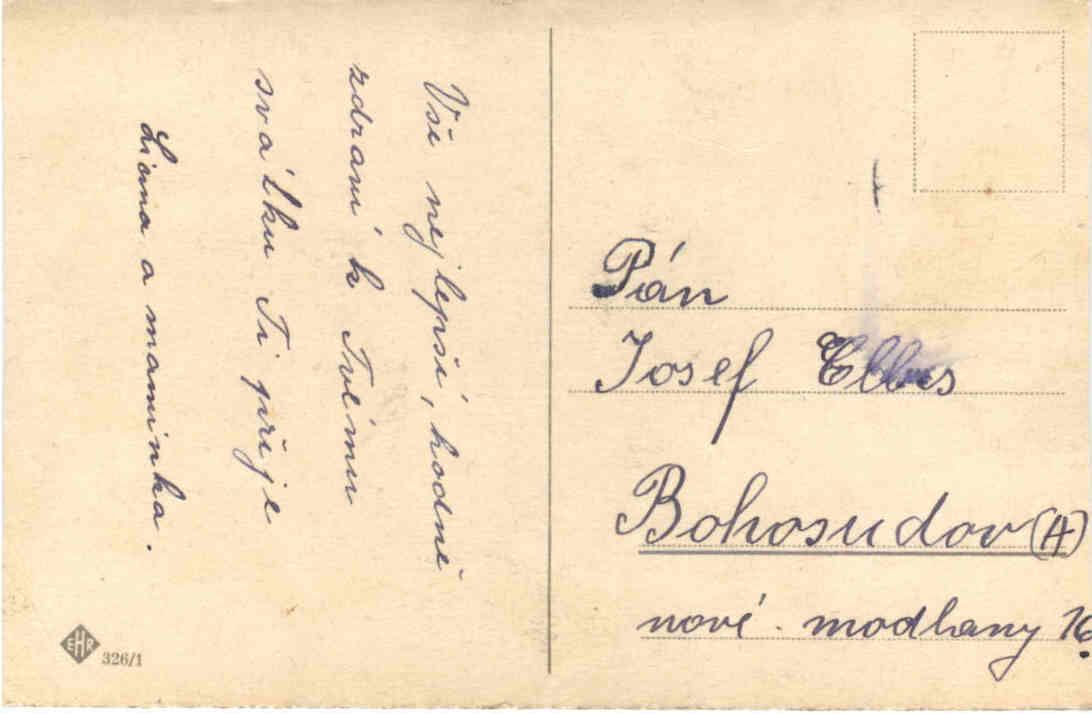 Vše nejlepší, hodně
zdraví k Tvému
svátku Ti přeje
a maminka.
Pán
Josef
Bohosudov (A)
nové. modlany 16.
EHR
326/1